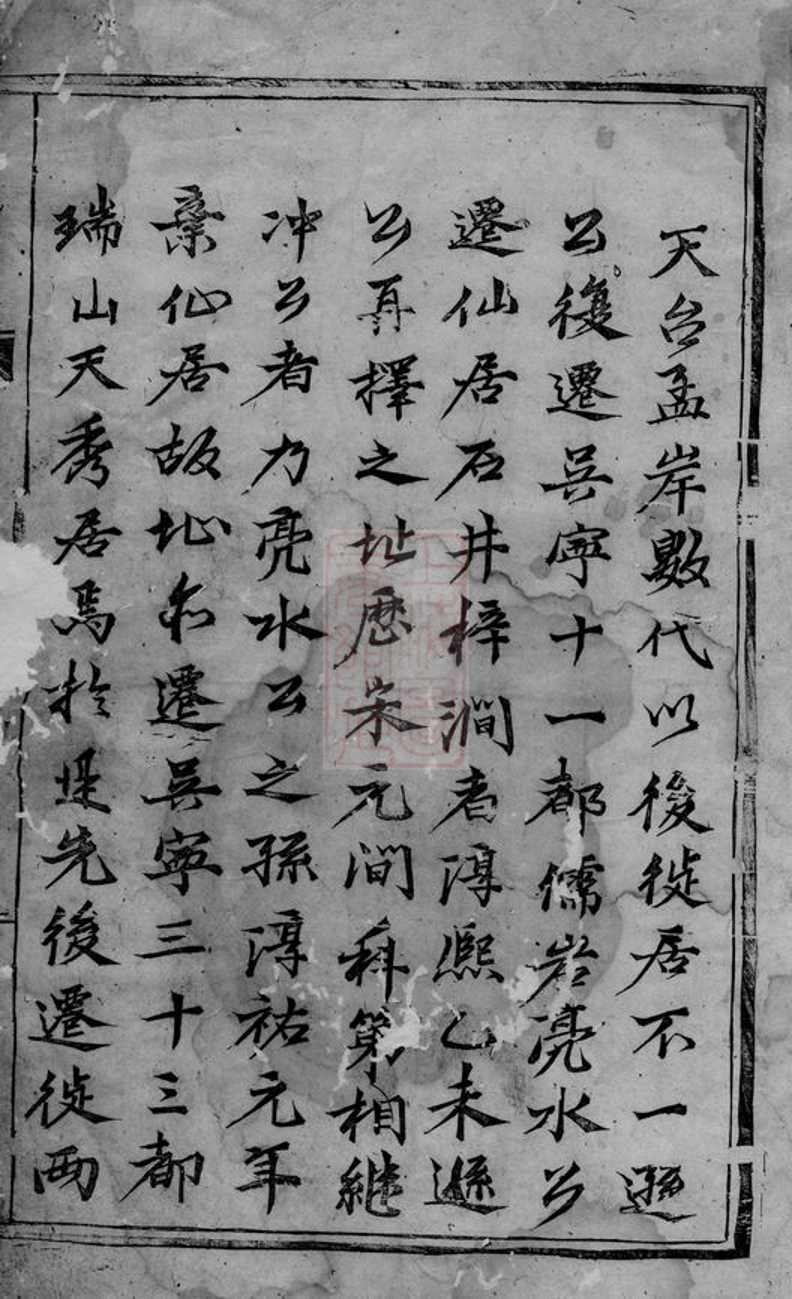 天台孟岸數代以後徙居不一遜
公復遷吳寧十一都儒岩亮水公
遷仙居石井梓澗者淳熙乙未遜
公再擇之址歷宋元間科第相繼
冲公者乃亮水公之孫淳祐元年
棄仙居故址而遷吳寧三十三都
瑞山天秀居焉於是先後遷徙兩